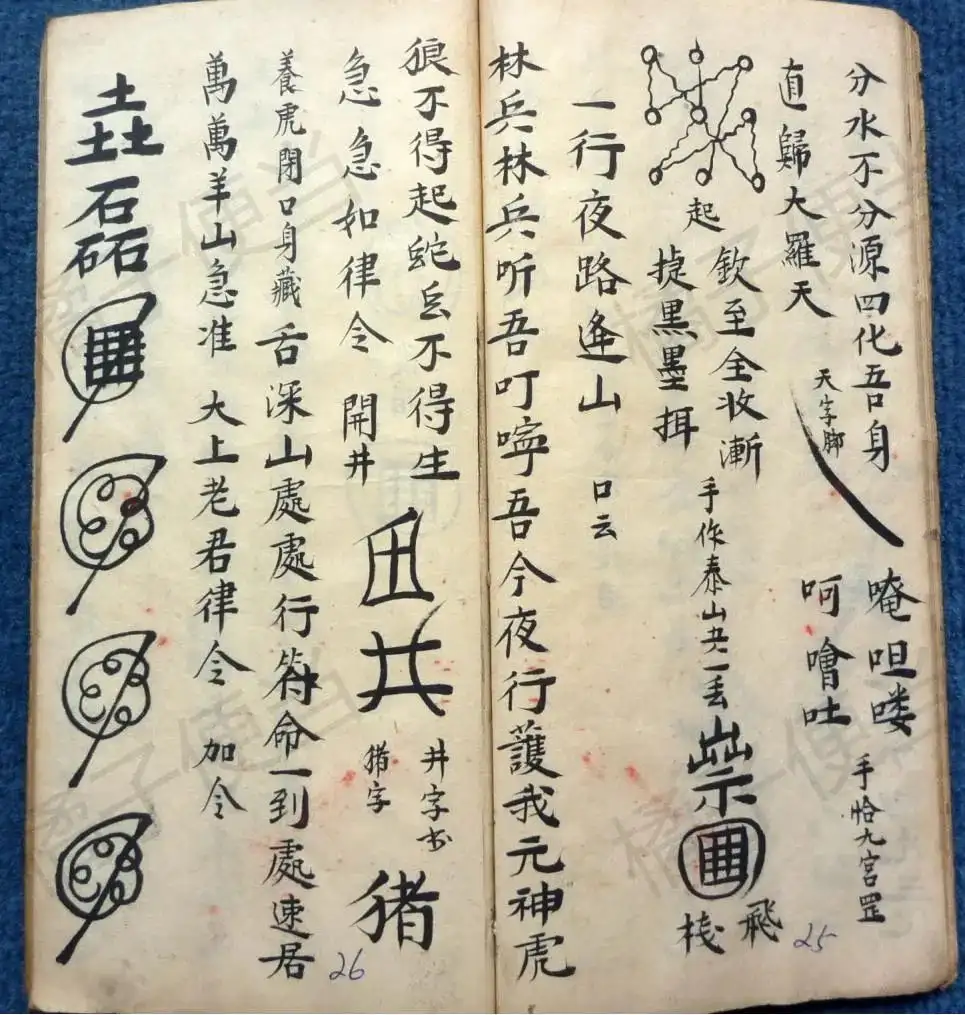 分水不分源四化吾身
直歸大羅天
天字脚
唵呾喽
呵噲吐
手恰九宮罡
起
欽至全收漸
捷黑墨挕
手作泰山共一丢
飛
栈
25
一行夜路逄山
口云
林兵林兵听吾叮嚀吾今夜行護我元神虎
狼不得起蛇
不得生
急急如律令
開井
井字书
猪字
猪
養虎閉口身藏舌深山處處行符命一到處速居
萬萬羊山急准
大上老君律令
加令
26
橘子便当
橘子便当
橘子便当
橘子便当